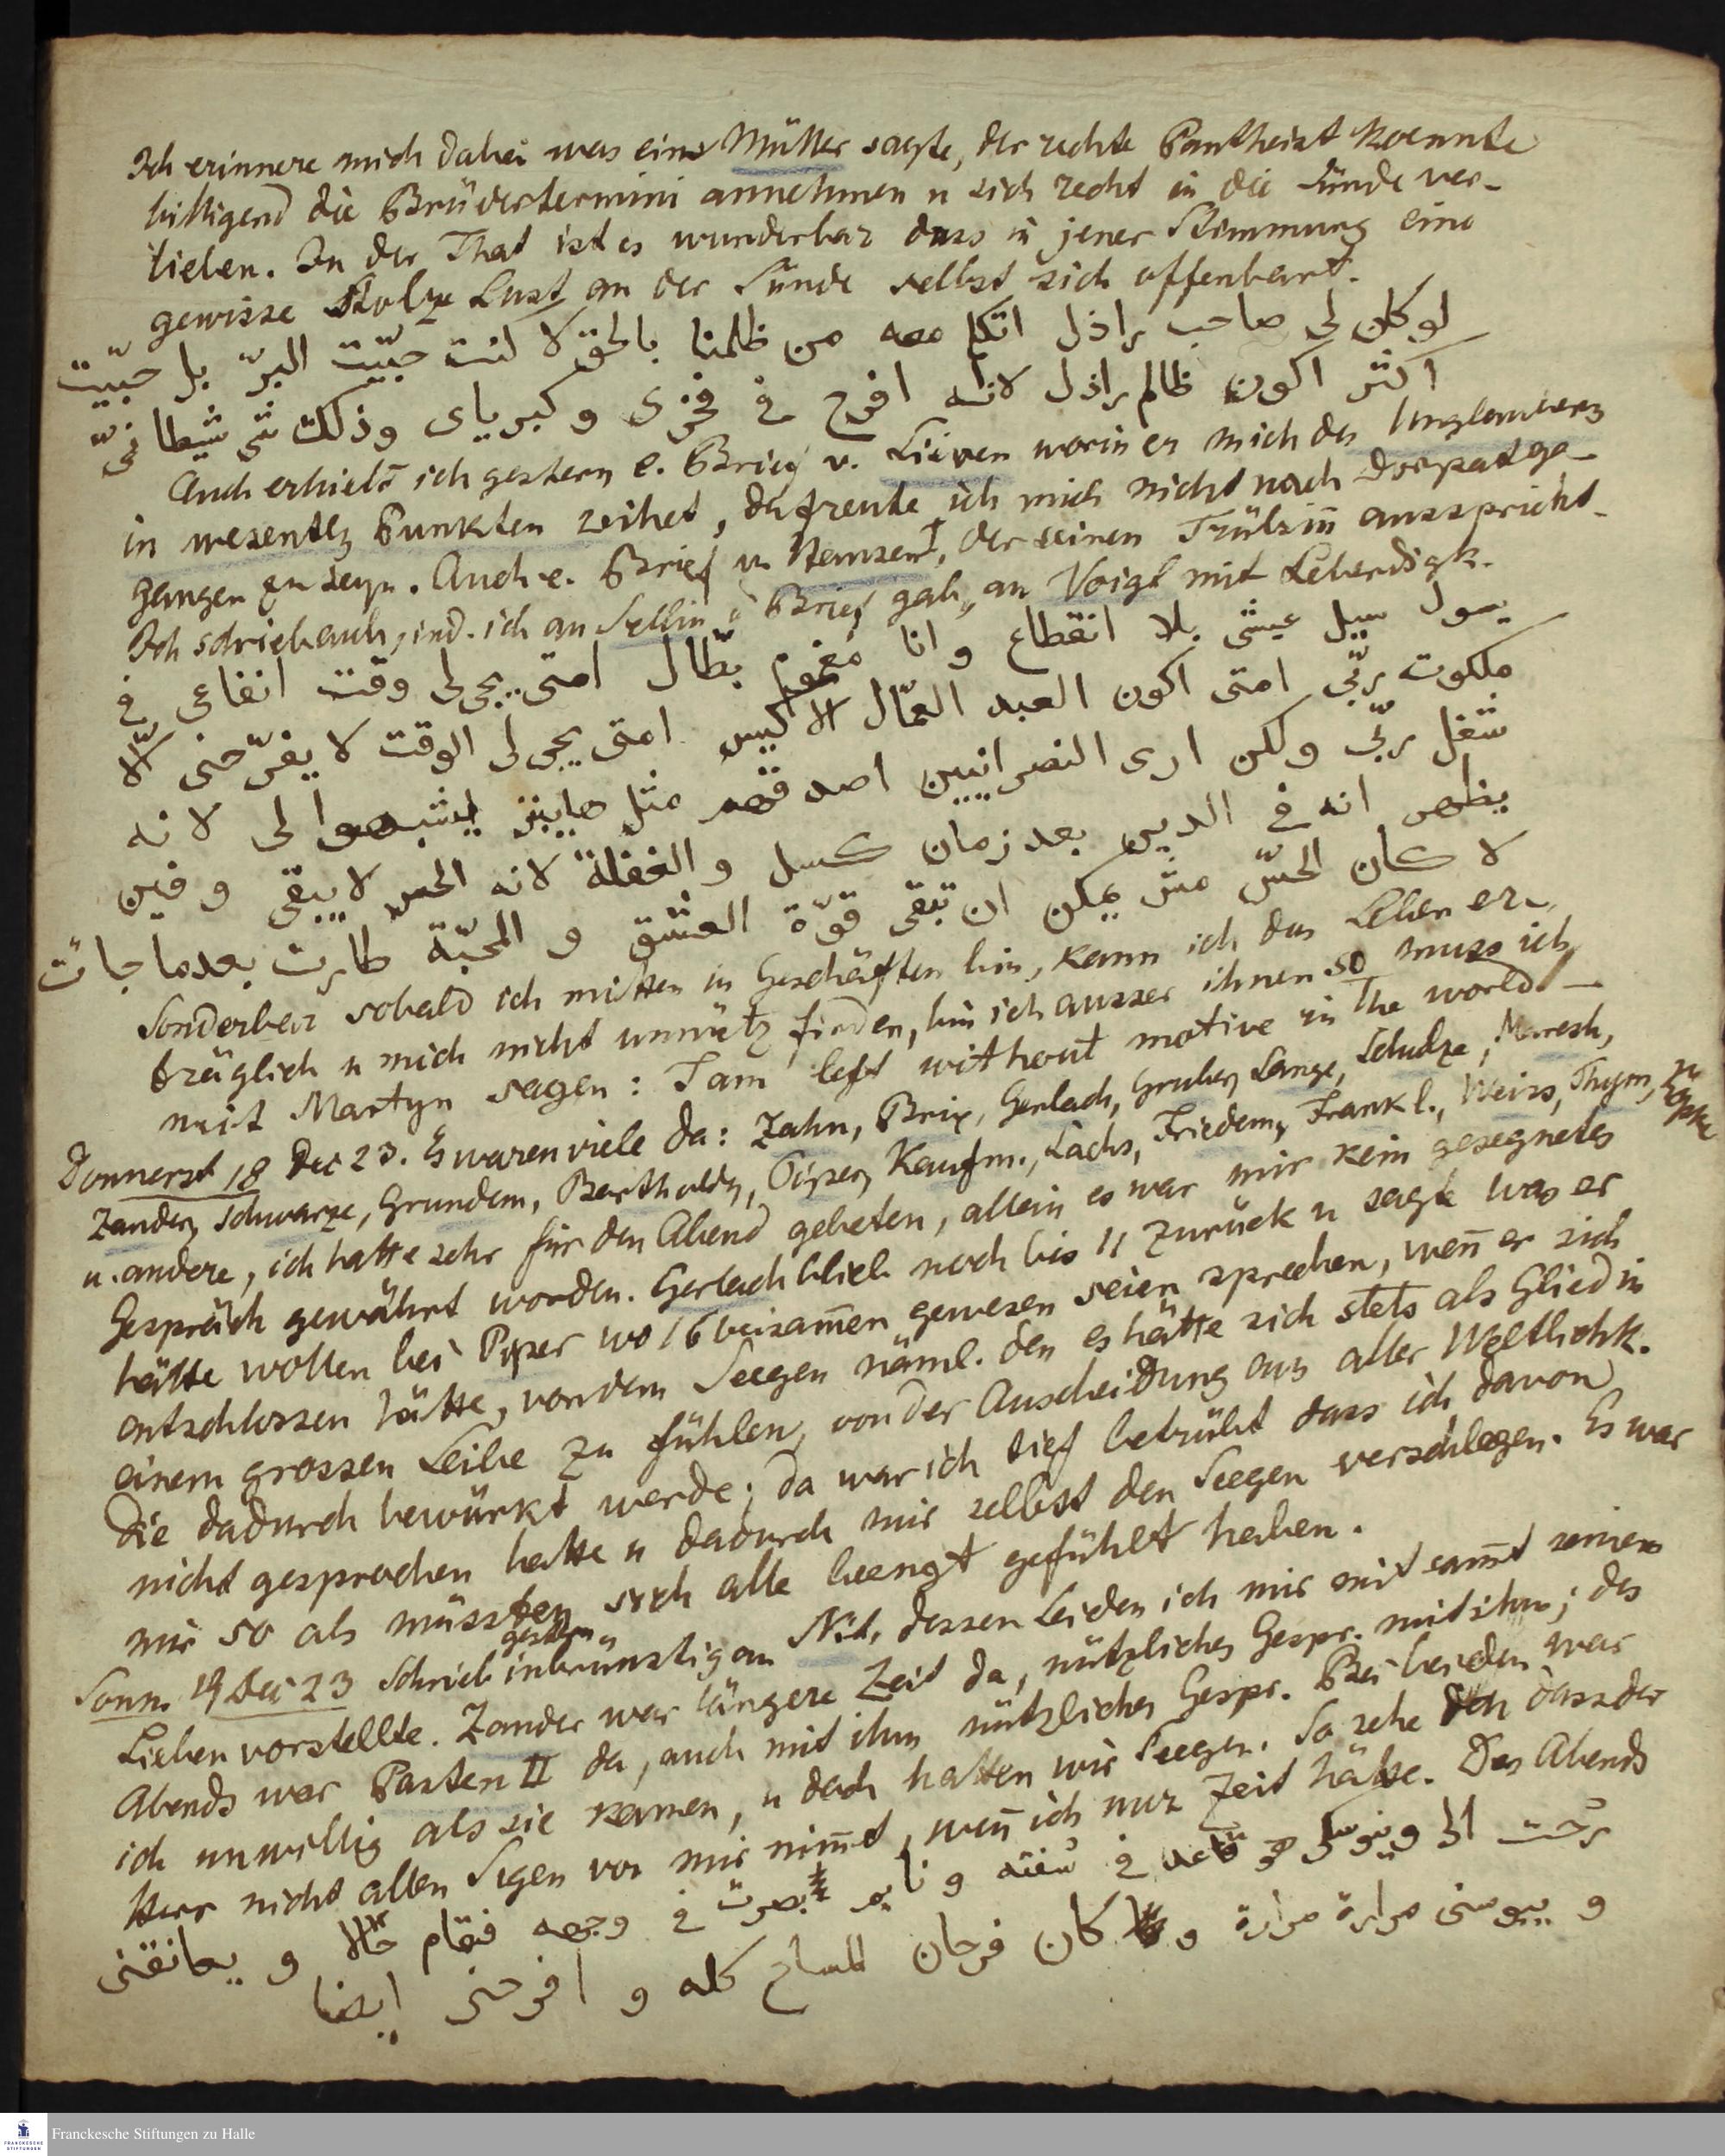 Ich erinnere mich dabei was eins Müller sagte, der rechte Pantheist koennte
billigend die Brüdertermini annehmen u sich recht in die Sünde ver-
lieben. In der That ist es wunderbar dass in jener Stimmung eine
gewisse stolze Lust an der Sünde selbst sich offenbart.
لو كان لى صاحب راذل اتكلم معه من ظلمنا بالحق لا لنت حبّيت البرّ بل حبّيت
اكثر اكون ظالم راذل لانه افرح فى فخرى و كبرياى وذلك شى شيطانىّ
Auch erhielt ich gestern e. Brief v. Lieven worin er mich des Unglaubens
in wesentl Punkten zeihet, da freute ich mich nicht nach Dorpat ge-
gangen zu seyn. Auch e. Brief v. Hemsen, der seinen Trübsinn ausspricht.
Ich schrieb auch, ind. ich an Sellin Brief gab, an Voigt mit Lebendigk.
يسول سيل عيشى بلا انقطاع وانا مغموم بطّال امتى يجى لى وقت انفاعى فى
ملكوت ربّى امتى اكون العبد العمّال الاكيس امتى يجى لى الوقت لا يفرّحنى الّا
شغل ربّى ولكن ارى النصرانيين اصدقهم مثل هاينز ليشبهوا لى لانه
يظهر انه فى الدين بعد زمان كسل والغفلة لانه الحس لا يبقى وفين
لا كان الحسّ مش يمكن ان تبقى قوّة العشق و المحبّة طارت بعدما جات
Sonderbar sobald ich mitten in Geschäften bin, kann ich das Leben er-
träglich u mich nicht unnütz finden, bin ich ausser ihnen so muss ich
mit Martyn sagen: I am left without motive in the world —
Donnerst 18 Dec 23. Es waren viele da: Zahn, Brix, Gerlach, Gruber, Lange, Schudze, Maresh,
Zander, Schwarze, Grundem, Bertholdy, Piper, Kaufm., Lachs, Friedem, Frankl., Weiss, Thym, Zöpke
u. andere, ich hatte sehr für den Abend gebeten, allein es war mir kein gesegnetes
Gespräch gewährt worden. Gerlach blieb noch bis 11 zurück u sagte was er
hätte wollen bei Piper wo 16 beisam̄en gewesen seien sprechen, wen̄ er sich
entschlossen hätte, von dem Seegen näml. den es hätte sich stets als Glied in
einem grossen Leibe zu fühlen, von der Auscheidung aus aller Weltlichk.
die dadurch bewürkt werde; da war ich tief betrübt dass ich davon
nicht gesprochen hatte u dadurch mir selbst den Seegen verschlagen. Es war
mir so als müssten sich alle beengt gefühlt haben.
Sonn. 19 Dec 23 Schrieb gestern inbrünstig an Nit, dessen Leiden ich mir mit sam̄t seinem
Lieben vorstellte. Zander war längere Zeit da, nützliches Gespr. mit ihm; des
Abends war Pasten II da, auch mit ihm nützliches Gespr. Bei beiden war
ich unwillig als sie kamen, u doch hatten wir Seegen. So sehe ich dass der
Herr nicht allen Segen von mir nim̄t, wen̄ ich nur Zeit hätte. Des Abends
رحت الى ويوسى هو قاعد فى شفته ونايم بصرت فى وجهه فقام حالا و يعانقنى
و يبوسنى مرارة مرارة و كان فرحان للمساح كله و افرحنى ايضا
Franckesche Stiftungen zu Halle